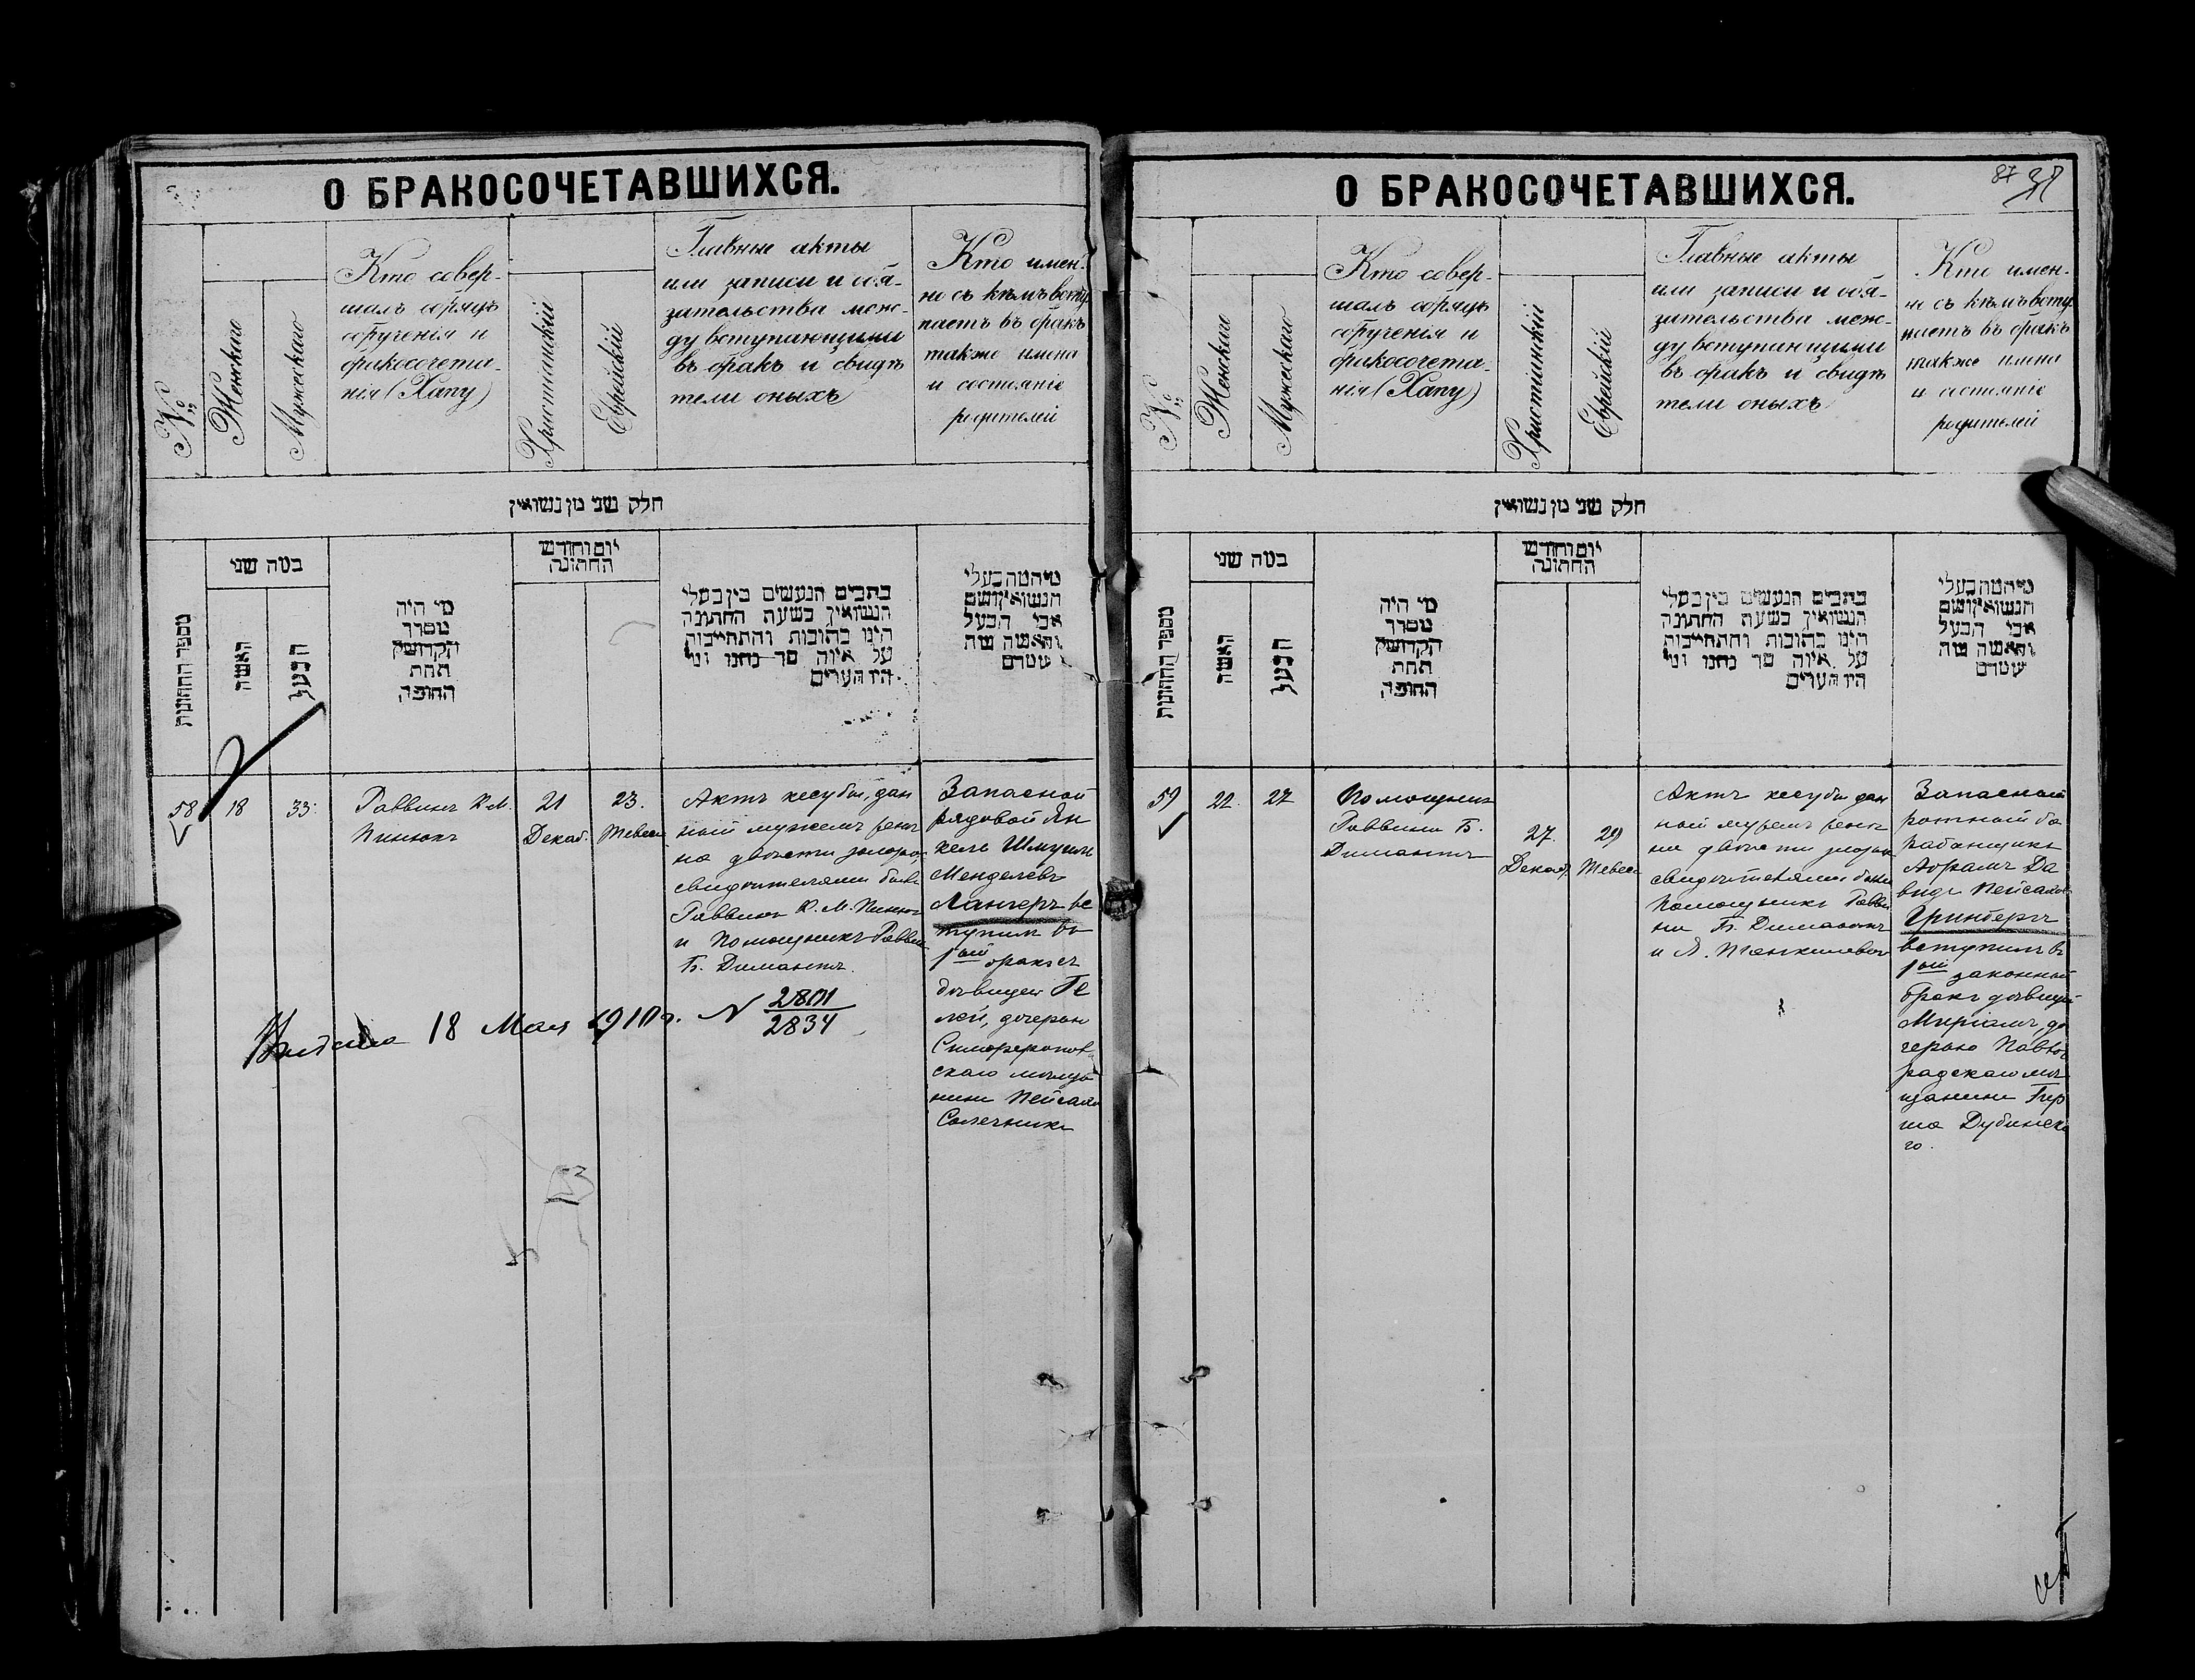 О БРАКОСОЧЕТАВШИХСЯ.
№
Женскаго
Мужескаго
Кто совер-
шалъ обрядъ
обрученія и
бракосочета-
нія (Хапу)
Христіанскій
Еврейскій
Главные акты
или записи и обя-
зательства меж-
ду вступающими
въ бракъ и свидѣ
тели оныхъ
Кто имен-
но съ кѣмъ всту
паетъ въ бракъ
также имена
и состояніе
родителей
חלק שני מן נשואין
מספר החתונות
כמה שני
האשה
הבעל
מי היה
מסדר
הקדושין
תחת
החופה
יום וחודש
החתונה
כתבים הנעשים בין בעלי
הנשואין בשעת החתונה
היינו כתובות והתחייבות
על איזה סך נתנו ומי
היו העדים
מי המה בעלי
הנשואין ושם
אבי הבעל
והאשה מה
שטרם
58
18
33.
Раввинъ К. М.
Пинюкъ
21
Декаб.
23.
Тевеса
Актъ кесубы, дан
ный мужемъ женѣ
на двѣсти золотыхъ
свидѣтелями были
Раввинъ К. М. Пинюкъ
и Помощникъ Раввина
Б. Димантъ.
Запасной
рядовой Ян
кель Шмуилъ
Менделевъ
Лангеръ вс
тупилъ въ
1ой бракъ съ
дѣвицею Ге
лей, дочерью
Симферополь
скаго мѣща
нина Пейсаха
Солечника
Выдана 18 Мая 1910 г. N 2801
2834
О БРАКОСОЧЕТАВШИХСЯ.
87 38
№
Женскаго
Мужескаго
Кто совер-
шалъ обрядъ
обрученія и
бракосочета-
нія (Хапу)
Христіанскій
Еврейскій
Главные акты
или записи и обя-
зательства меж-
ду вступающими
въ бракъ и свидѣ
тели оныхъ
Кто имен-
но съ кѣмъ всту
паетъ въ бракъ
также имена
и состояніе
родителей
חלק שני מן נשואין
מספר החתונות
כמה שני
האשה
הבעל
מי היה
מסדר
הקדושין
תחת
החופה
יום וחודש
החתונה
כתבים הנעשים בין בעלי
הנשואין בשעת החתונה
היינו כתובות והתחייבות
על איזה סך נתנו ומי
היו העדים
מי המה בעלי
הנשואין ושם
אבי הבעל
והאשה מה
שטרם
59
22.
27
Помощникъ
Раввина Б.
Димантъ
27.
Декаб.
29
Тевеса
Актъ кесубы дан
ный мужемъ женѣ
на двѣсти золотыхъ
свидѣтелями были
Помощникъ Равви
на Б. Димантъ
и Я.
Запасной
ротный ба
рабанщикъ
Абрамъ Да
видъ Пейсахов
Гринбергъ
вступилъ въ
1ой законный
бракъ дѣвицей
Миріамъ, до
черью Павло
градскаго мѣ
щанина Гир
ша Дубинска
го.